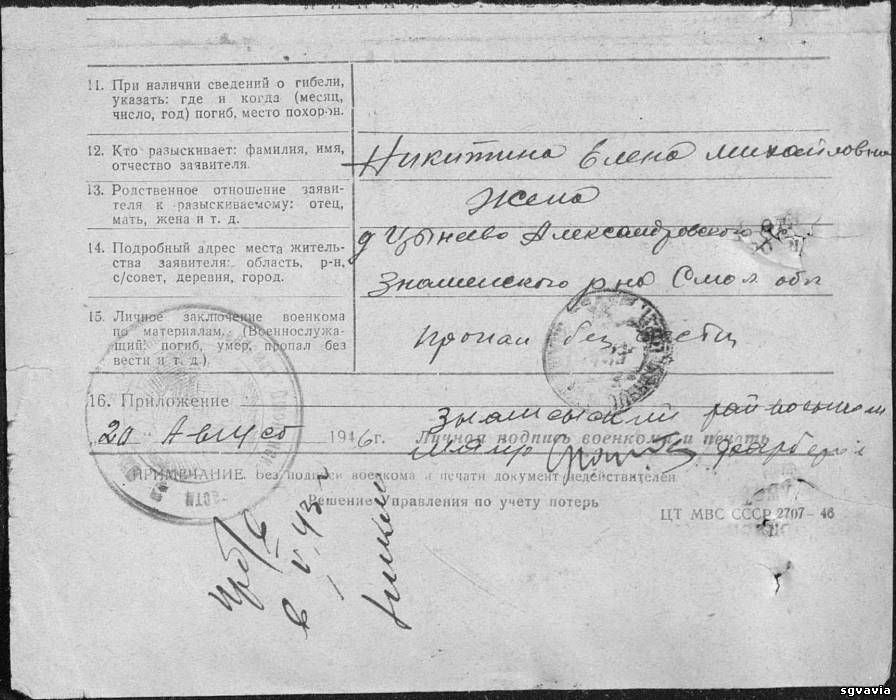 11. При наличии сведений о гибели,
указать: где и когда (месяц,
число, год) погиб, место похорон.
12. Кто разыскивает: фамилия, имя,
отчество заявителя.
Никитина Елена Михайловна
13. Родственное отношение заяви-
теля к разыскиваемому: отец,
мать, жена и т. д.
Жена
14. Подробный адрес места житель-
ства заявителя: область, р-н,
с/совет, деревня, город.
д Цынеево Александровского
Знаменского р на Смол обл
15. Личное заключение военкома
по материалам. (Военнослужа-
щий: погиб, умер, пропал без
вести и т. д.)
Пропал без вести
16. Приложение
Знаменский райвоенком
20 Август 1946 г. Личная подпись военкома и печать
майор
ПРИМЕЧАНИЕ. Без подписи военкома и печати документ недействителен
Решение Управления по учету потерь
ЦТ МВС СССР 2707-46
в V.43 г
sgvavia